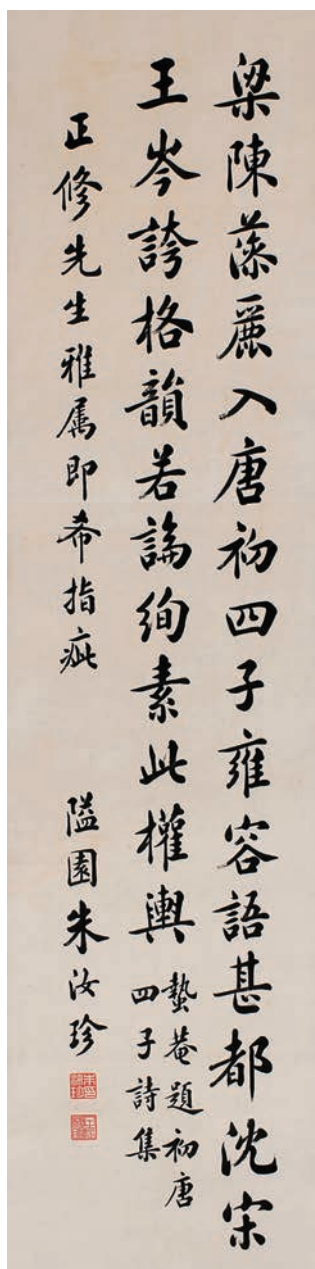 梁陳藻麗入唐初四子雍容語甚都沈宋
王岑誇格韻若論絢素此權輿
蟄菴題初唐
四子詩集
正修先生雅属即希指疵
隘園朱汝珍